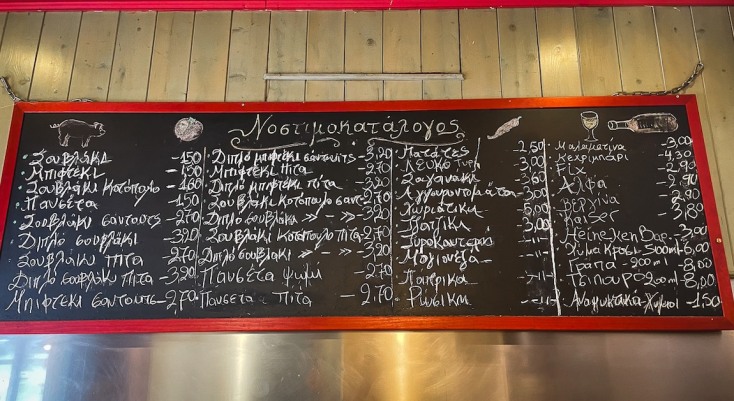 Νοστιμοκατάλογος
Σουβλάκι -1,50
Μπιφτέκι -1,50
Σουβλάκι Κοτόπουλο -1,60
Πανσέτα -1,50
Σουβλάκι σάντουιτς -2,70
Διπλό σουβλάκι -3,20
Σουβλάκι Πίτα -2,70
Διπλό σουβλάκι Πίτα -3,20
Μπιφτέκι σάντουιτς -2,70
Διπλό μπιφτέκι σάντουιτς -3,20
Μπιφτέκι Πίτα -2,70
Διπλό μπιφτέκι πίτα -3,20
Σουβλάκι Κοτόπουλο σαντ- -2,70
Διπλό σουβλάκι -»- -»- -3,20
Σουβλάκι Κοτόπουλο πίτα -2,70
Διπλό σουβλάκι -»- -»- -3,20
Πανσέτα ψωμί -2,70
Πανσέτα Πίτα -2,70
Πατάτες -2,50
Λευκό τυρί -3,00
Σαγανάκι
Αγγουροντομάτα -3,00
Χωριάτικη
Τζατζίκι -3,00
Τυροκαυτερή
Μαγιονέζα
Πάπρικα
Ρώσικη
Μαλαματίνα -3,00
Κεχριμπάρι -4,30
Fix -2,90
Άλφα
Βεργίνα -2,90
Kaiser -3,80
Heineken Βαρ. -3,00
Χύμα Κρασί 500ml -6,00
Τσίπουρο 200ml -8,00
Αναψυκτικά-Χυμοί -1,50